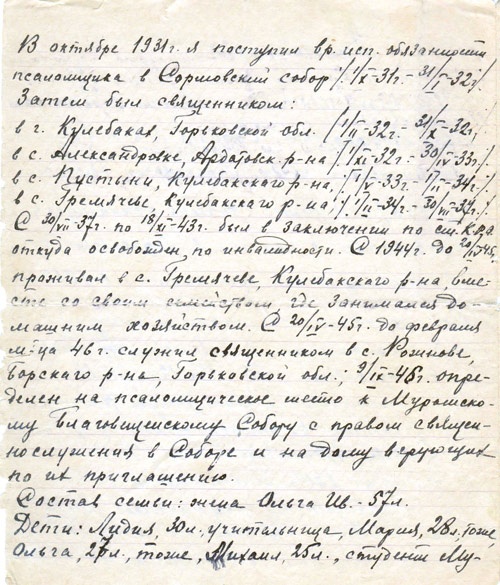 В октябре 1931г. я поступил вр. исп. обязанности
псаломщика в Сормовский собор /1/X-31г.-31/I-32г/.
Затем был священником:
в г. Кулебаках, Горьковской обл. /1/II-32г.-31/X-32г./
в с. Александровке, Ардатовск. р-на /1/XI-32г.-30/IV-33г./
в с. Пустыни, Кулебакского р-на, /1/V-33г.-1/II-34г./
в с. Гремячеве, Кулебакского р-на, /1/II-34г.-30/VII-37г./
С 30/VII-37г. по 18/XI-43г. был в заключении по см.
откуда освобожден по инвалидности. С 1944г. до 20/IV-45г.
проживал в с. Гремячеве, Кулебакского р-на, вме-
сте со своим семейством, где занимался до-
машним хозяйством. С 20/IV-45г. до февраля
м-ца 46г. служил священником в с. Рожнове,
Борского р-на, Горьковской обл.; 9/IX-46г. опре-
делен на псаломщическое место к Муромско-
му Благовещенскому Собору с правом священ-
нослужения в Соборе и на дому верующих
по их приглашению.
Состав семьи: жена Ольга Ив.-57л.
Дети: Лидия, 30л., учительница, Мария, 28л, тоже,
Ольга, 27л., тоже, Михаил, 25л., студент Му-